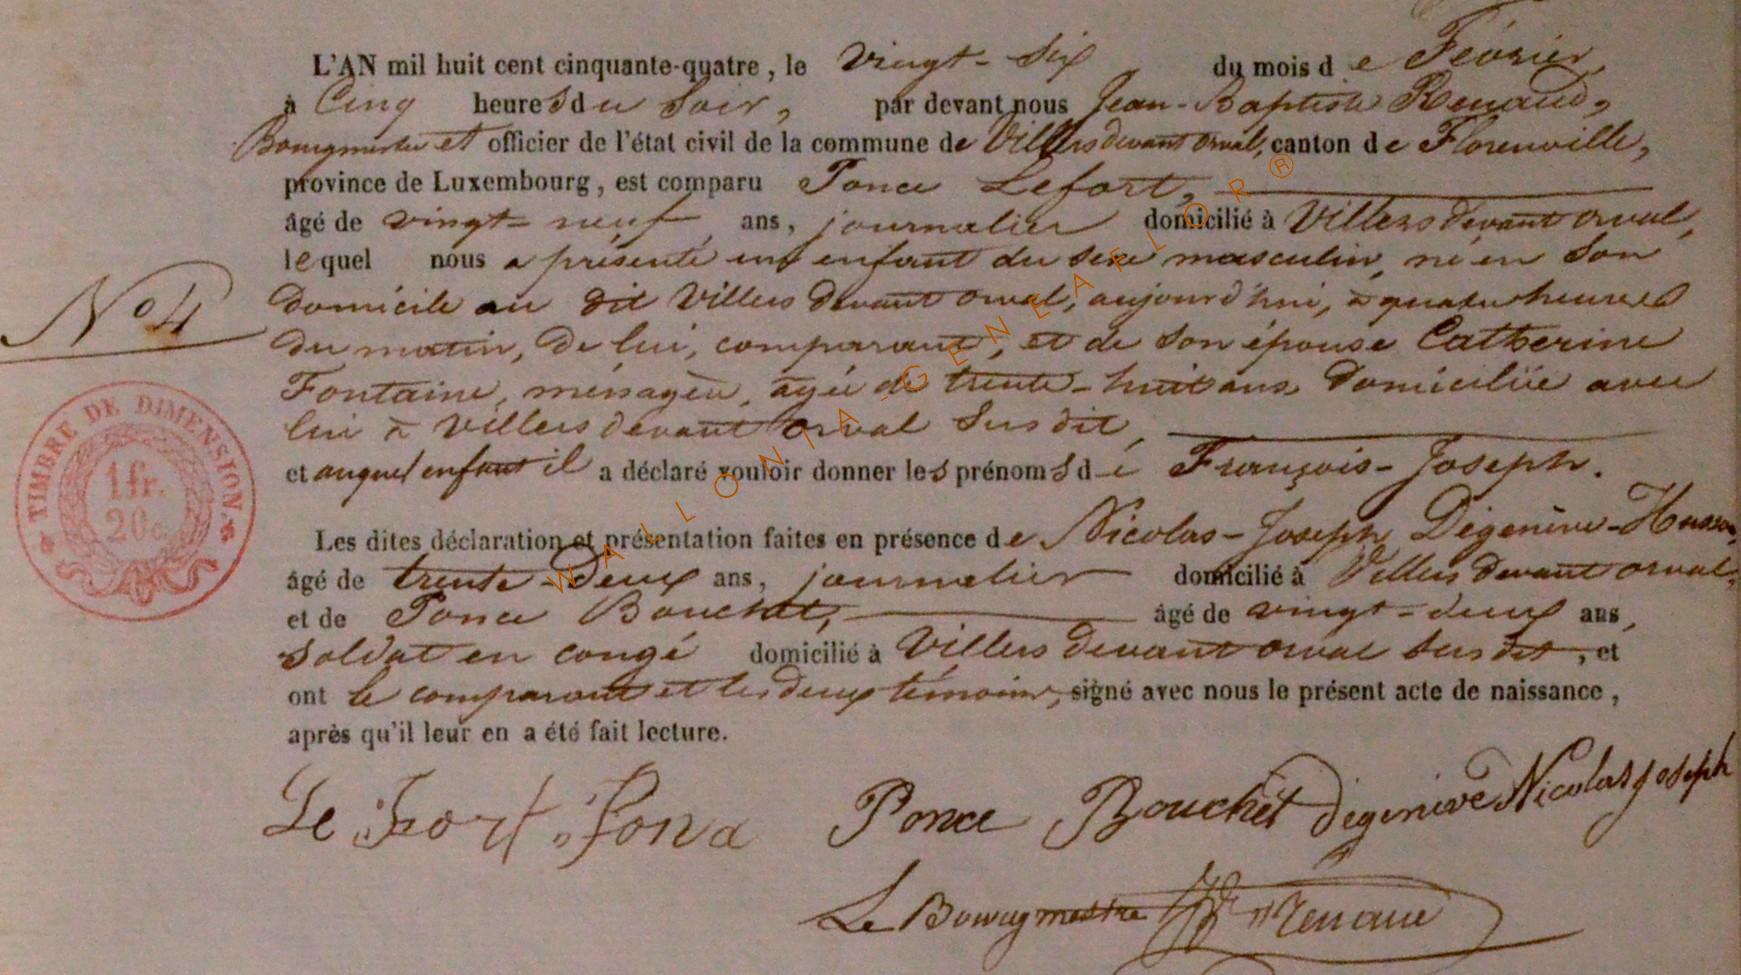 L'AN mil huit cent cinquante-quatre, le vingt-six du mois de Février,
à Cinq heures du Soir, par devant nous Jean-Baptiste Renaud,
Bourgmestre et officier de l'état civil de la commune de Villers devant orval, canton de Florenville,
province de Luxembourg, est comparu Ponce Lefort,
âgé de vingt-neuf ans, journalier domicilié à Villers devant orval,
lequel nous a présenté un enfant du sexe masculin, né en Son
domicile au dit Villers devant orval, aujourd'hui, à quatre heures
du matin, de lui, comparant, et de Son épouse Catherine
Fontaine, ménagère, agée de trente-huit ans, domiciliée avec
lui à Villers devant orval Susdit,
et auquel enfant il a déclaré vouloir donner les prénoms de François-Joseph.
N° 4
TIMBRE DE DIMENSION.
1 fr.
20 c.
Les dites déclaration et présentation faites en présence de Nicolas-Joseph Dégenève-Husson,
âgé de trente-Deux ans, journalier domicilié à Villers devant orval,
et de Ponce Bouchet, âgé de vingt-deux ans,
Soldat en congé domicilié à Villers devant orval Susdit, et
ont le comparant et les deux témoins, signé avec nous le présent acte de naissance,
après qu'il leur en a été fait lecture.
Le Fort Ponce Ponce Bouchèt Degenève Nicolas joseph
Le Bourgmestre Renaud
WALLONIA-GENEAFLOR®